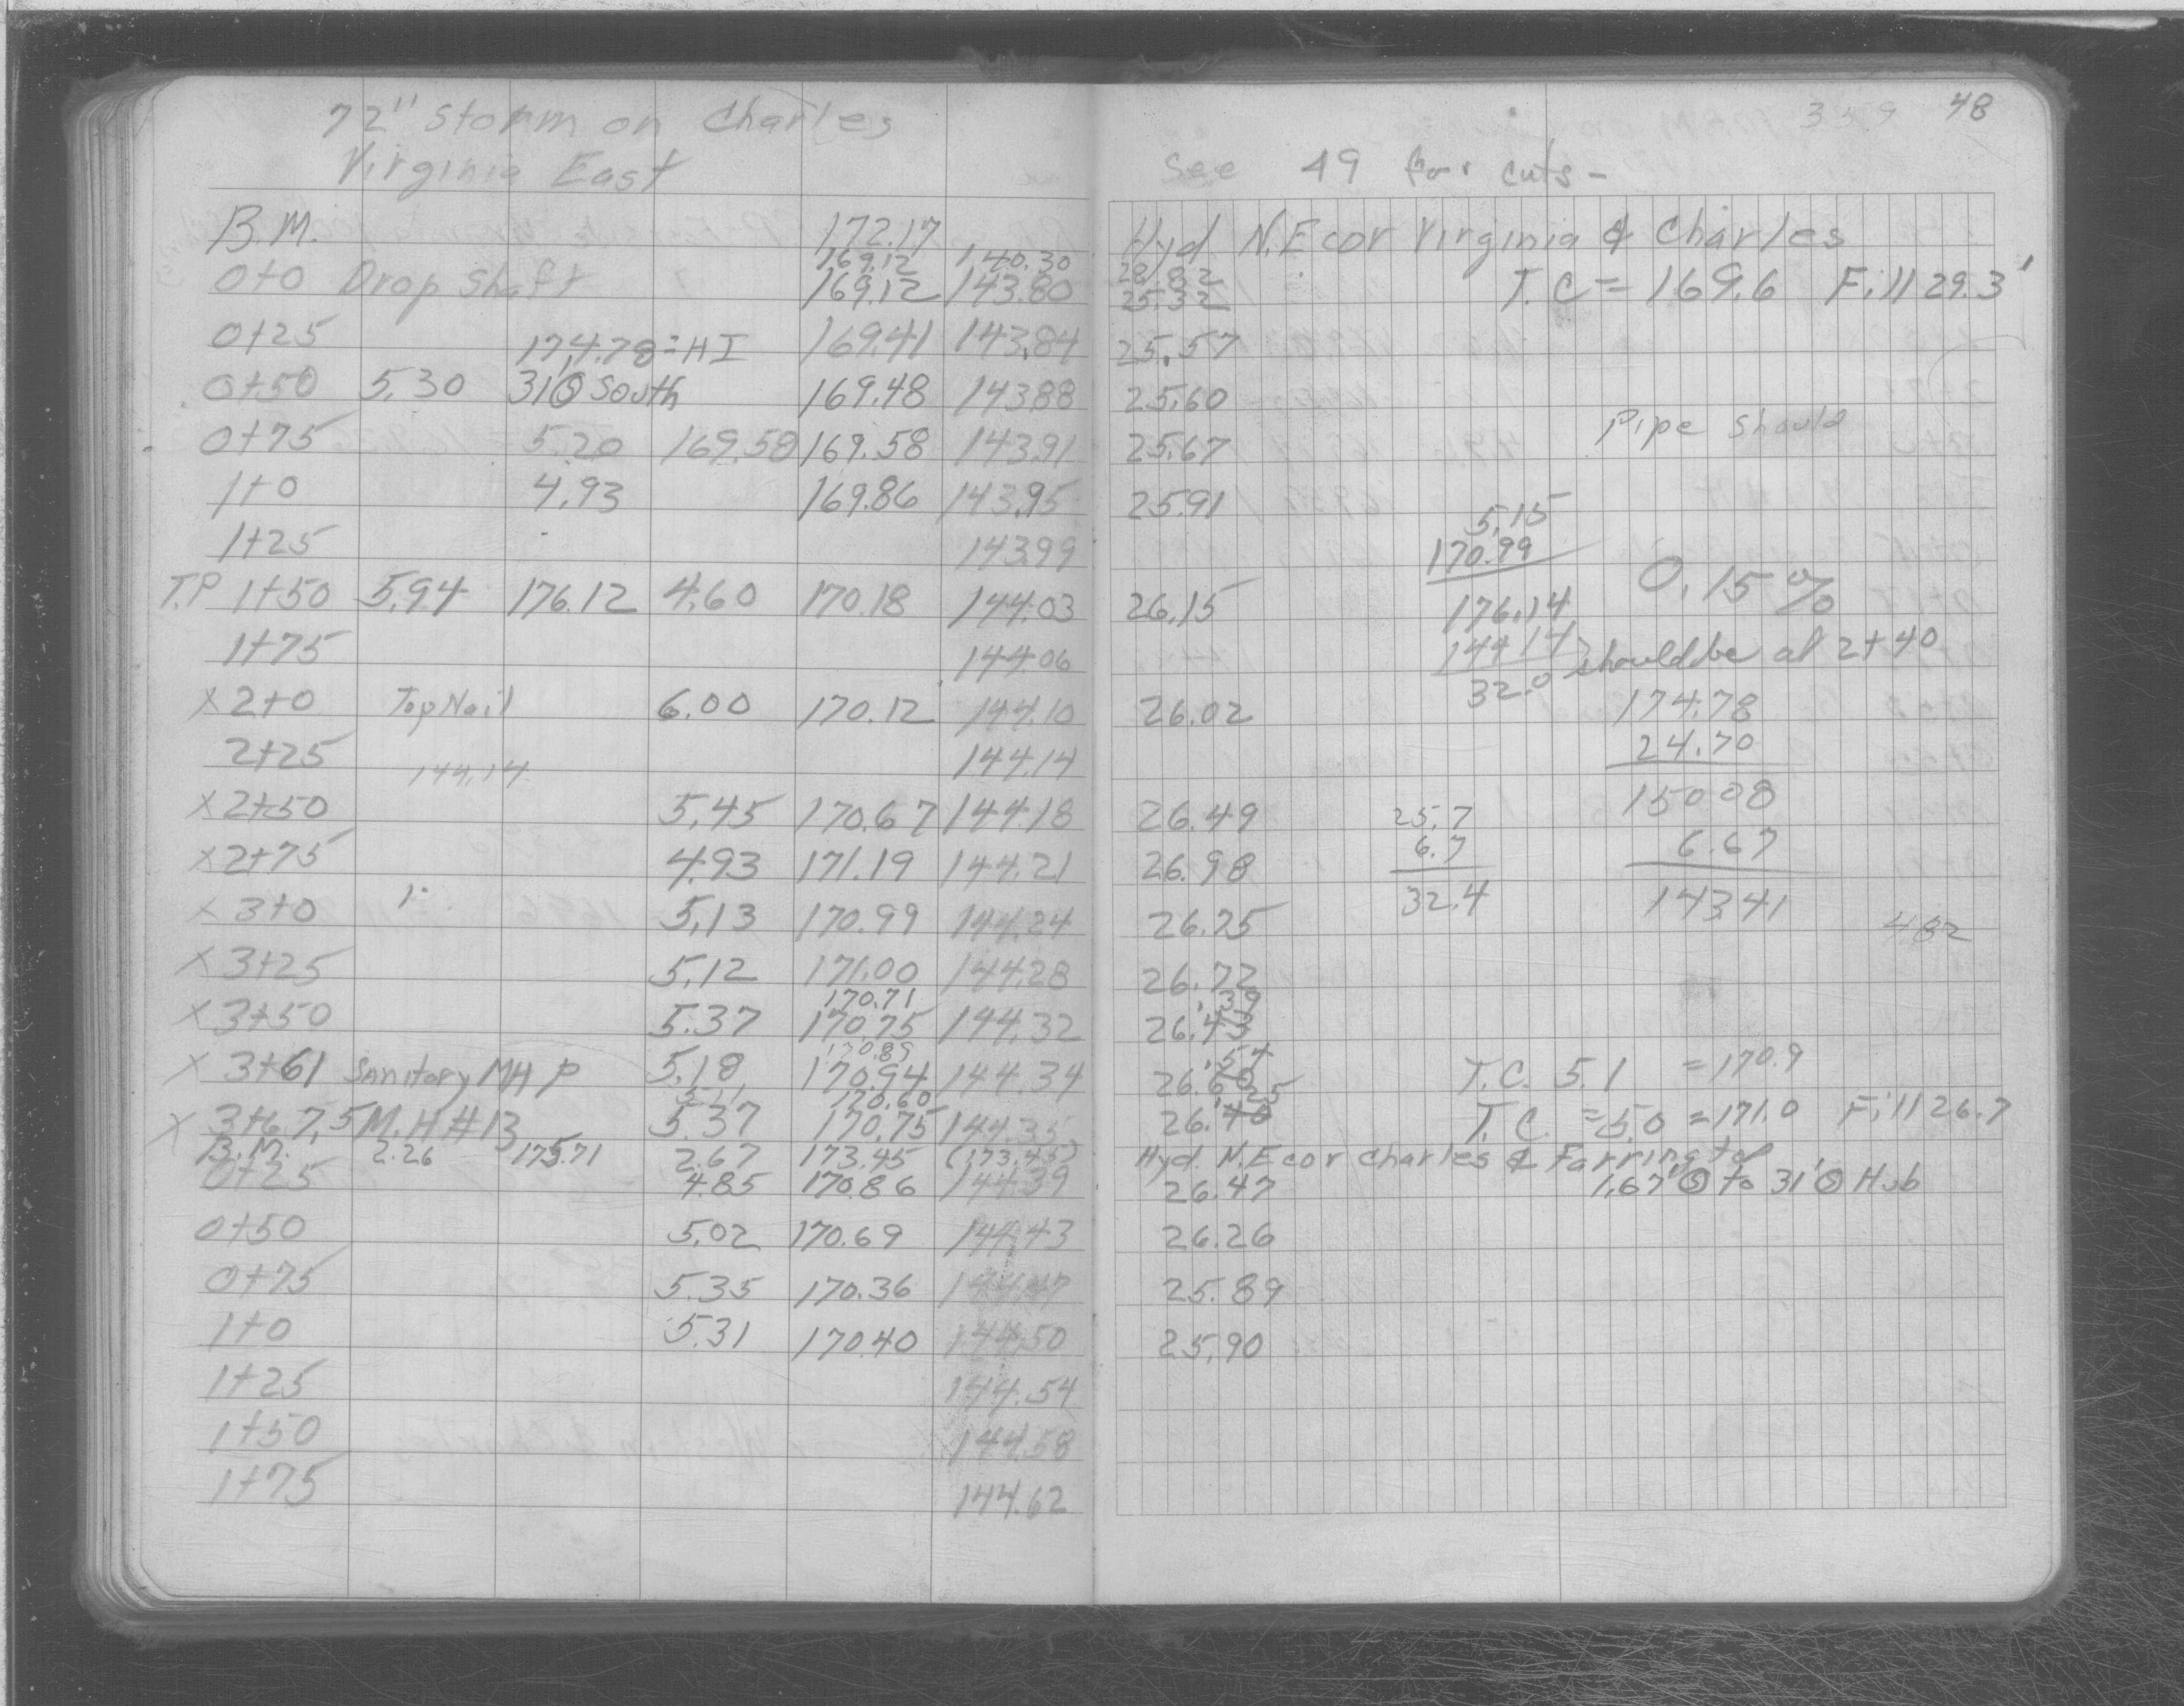 72" Storm on Charles
Virginia East
B.M. 172.17
169.12 140.30
0+0 Drop Shaft 169.12 143.80
0+25 174.78=HI 169.41 143.84
0+50 5.30 31 Ⓢ South 169.48 143.88
0+75 5.20 169.58 169.58 143.91
1+0 4.93 169.86 143.95
1+25 143.99
T.P 1+50 5.94 176.12 4.60 170.18 144.03
1+75 144.06
x 2+0 Top Nail 6.00 170.12 144.10
2+25 144.14 144.14
x 2+50 5.45 170.67 144.18
x 2+75 4.93 171.19 144.21
x 3+0 5.13 170.99 144.24
x 3+25 5.12 171.00 144.28
170.71
x 3+50 5.37 170.75 144.32
170.89
x 3+61 Sanitory MH P 5.18 170.94 144.34
170.60
x 3+67.5 M.H #13 5.37 170.75 144.35
B.M. 2.26 175.71 2.67 173.45 (173.45)
0+25 4.85 170.86 144.39
0+50 5.02 170.69 144.43
0+75 5.35 170.36 144.47
1+0 5.31 170.40 144.50
1+25 144.54
1+50 144.58
1+75 144.62
359 48
See 49 for cuts -
Hyd N.E cor Virginia & Charles
28.82
25.32 T.C = 169.6 Fill 29.3'
25.57
25.60
Pipe Should
25.67
25.91
5.15
170.99
0.15%
26.15 176.14
144 14 should be at 2+40
32.0
26.02 174.78
24.70
26.49 25.7 150 08
6.7 6.67
26.98
32.4 143 41
26.75 482
26.72
.39
26.43
.54
26.60 T.C. 5.1 = 170.9
.25
26.40 T.C. = 5.0 = 171.0 Fill 26.7
Hyd. N.E cor Charles & Farrington
26.47 1.67' Ⓢ to 31' Ⓢ Hub
26.26
25.89
25.90